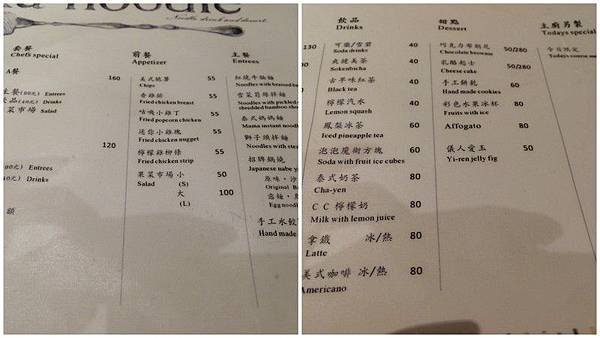 noodle
Noodle, drink and dessert
套餐
Chef's special
A餐 160
Entrees
Drinks
Salad
120
Entrees
Drinks
前餐
Appetizer
美式脆薯 55
Chips
香雞排 55
Fried chicken breast
咕咾小雞丁 55
Fried popcorn chicken
迷你小雞塊 55
Fried chicken nugget
檸檬雞柳條 55
Fried chicken strip
果菜市場 小 50
Salad (S)
大 100
(L)
主餐
Entrees
紅燒牛腩麵
Noodles with braised
雪菜筍絲拌麵
Noodles with pickled
shredded bamboo
泰式媽媽麵
Mama instant
獅子頭拌麵
Noodles with
招牌鍋燒
Japanese nabe
原味
Original
Egg noodle
手工水餃
Hand made
飲品
Drinks
可樂/雪碧 40
Soda drinks
Sokenbicha 40
古早味紅茶 40
Black tea
檸檬汽水 40
Lemon squash
鳳梨冰茶 60
Iced pineapple tea
泡泡魔術方塊 60
Soda with fruit ice cubes
泰式奶茶 80
Cha-yen
C C 檸檬奶 80
Milk with lemon juice
拿鐵 冰/熱 80
Latte
美式咖啡 冰/熱 80
Americano
甜點
Dessert
巧克力布朗尼 50/280
Chocolate brownie
乳酪起士 50/280
Cheese cake
手工餅乾 60
Hand made cookies
彩色水果冰杯 80
Fruits with ice
Affogato 80
儀人愛玉 50
Yi-ren jelly fig
主廚另製
Todays special
今日限定
Todays course
130